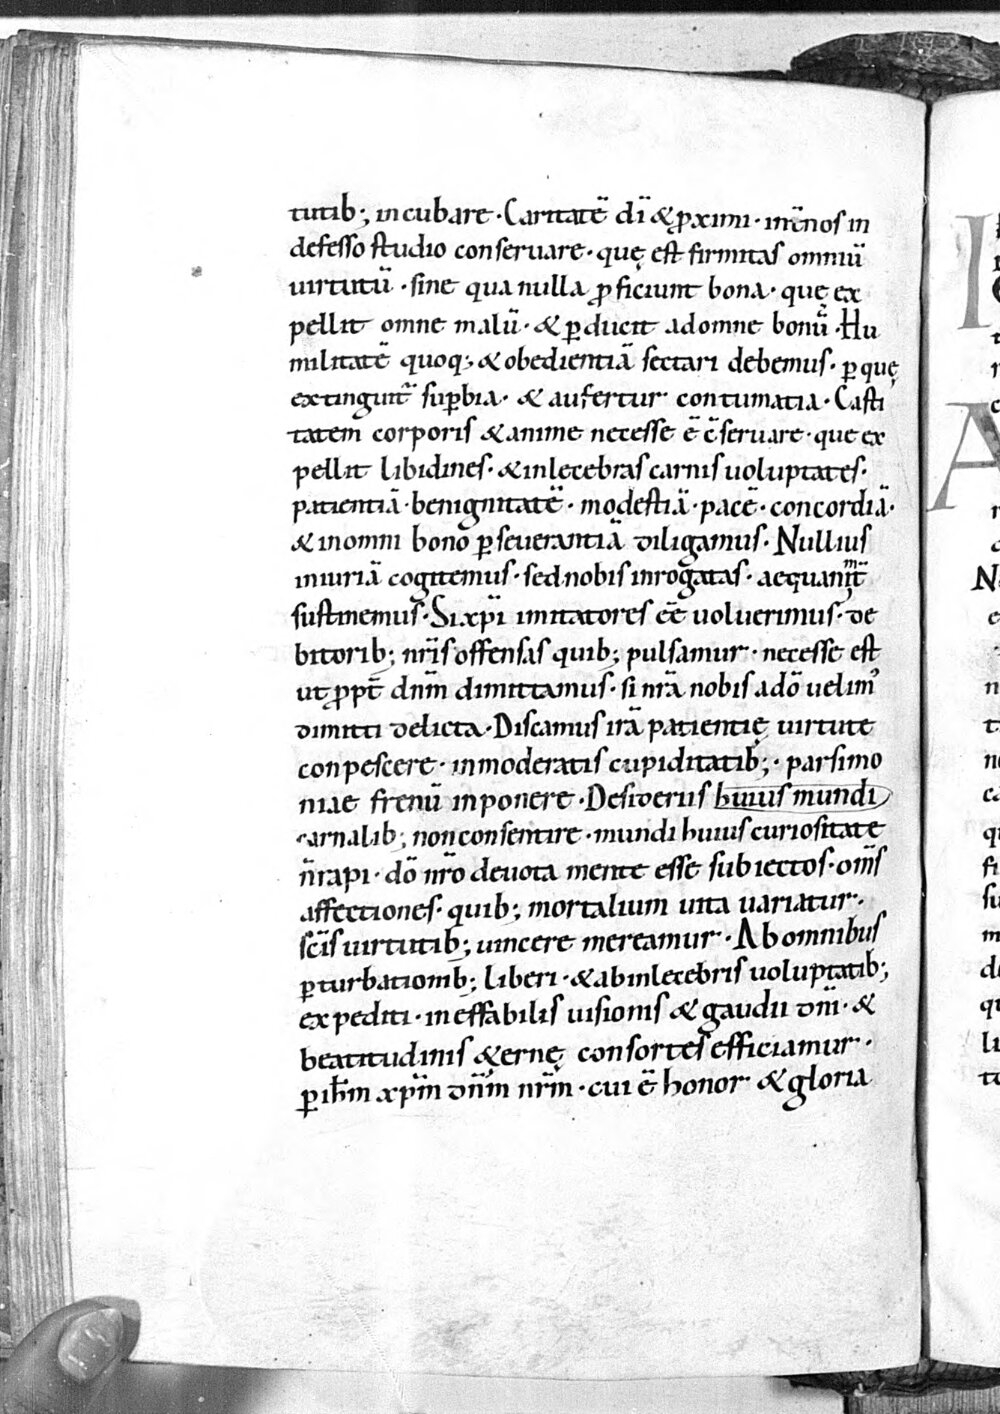 tutib; incubare · Caritatē dī & ꝓximi · int̄ nos in
defesso studio conseruare · quę est firmitas omniū
uirtutū · sine qua nulla ꝓficiunt bona · quę ex
pellit omne malū · & ꝑducit ad omne bonū · Hu
militatē quoq; & obedientiā sectari debemus · ꝑ quę
extinguit̄ suꝑbia · & aufertur contumatia · Casti
tatem corporis & anime necesse ē c̄seruare · que ex
pellit libidines · & inlecebras carnis uoluptates ·
patientiā · benignitatē · modestiā · pacē · concordiā ·
& in omni bono ꝑseuerantiā diligamus · Nullius
iniuriā cogitemus · sed nobis inrogatas · aequanimit̄
sustinemus · Si xp̄i imitatores eē uoluerimus · de
bitorib; nr̄is offensas quib; pulsamur · necesse est
ut ꝓpt̄ dnm̄ dimittamus · si nr̄a nobis a dō uelim᾽
dimitti delicta · Discamus irā patientię uirtute
conpescere · inmoderatis cupiditatib; · parsimo
niae frenū inponere · Desideriis huius mundi
carnalib; non consentire · mundi huius curiositate
n̄ rapi · dō nr̄o deuota mente esse subiectos · om̄s
affectiones · quib; mortalium uita uariatur ·
sc̄is uirtutib; uincere mereamur · Ab omnibus
ꝑturbationib; liberi · & ab inlecebris uoluptatib;
expediti · ineffabilis uisionis & gaudii dn̄i · &
beatitudinis &ernę consortes efficiamur ·
ꝑ ih̄m xp̄m dn̄m nr̄m · cui ē honor & gloria